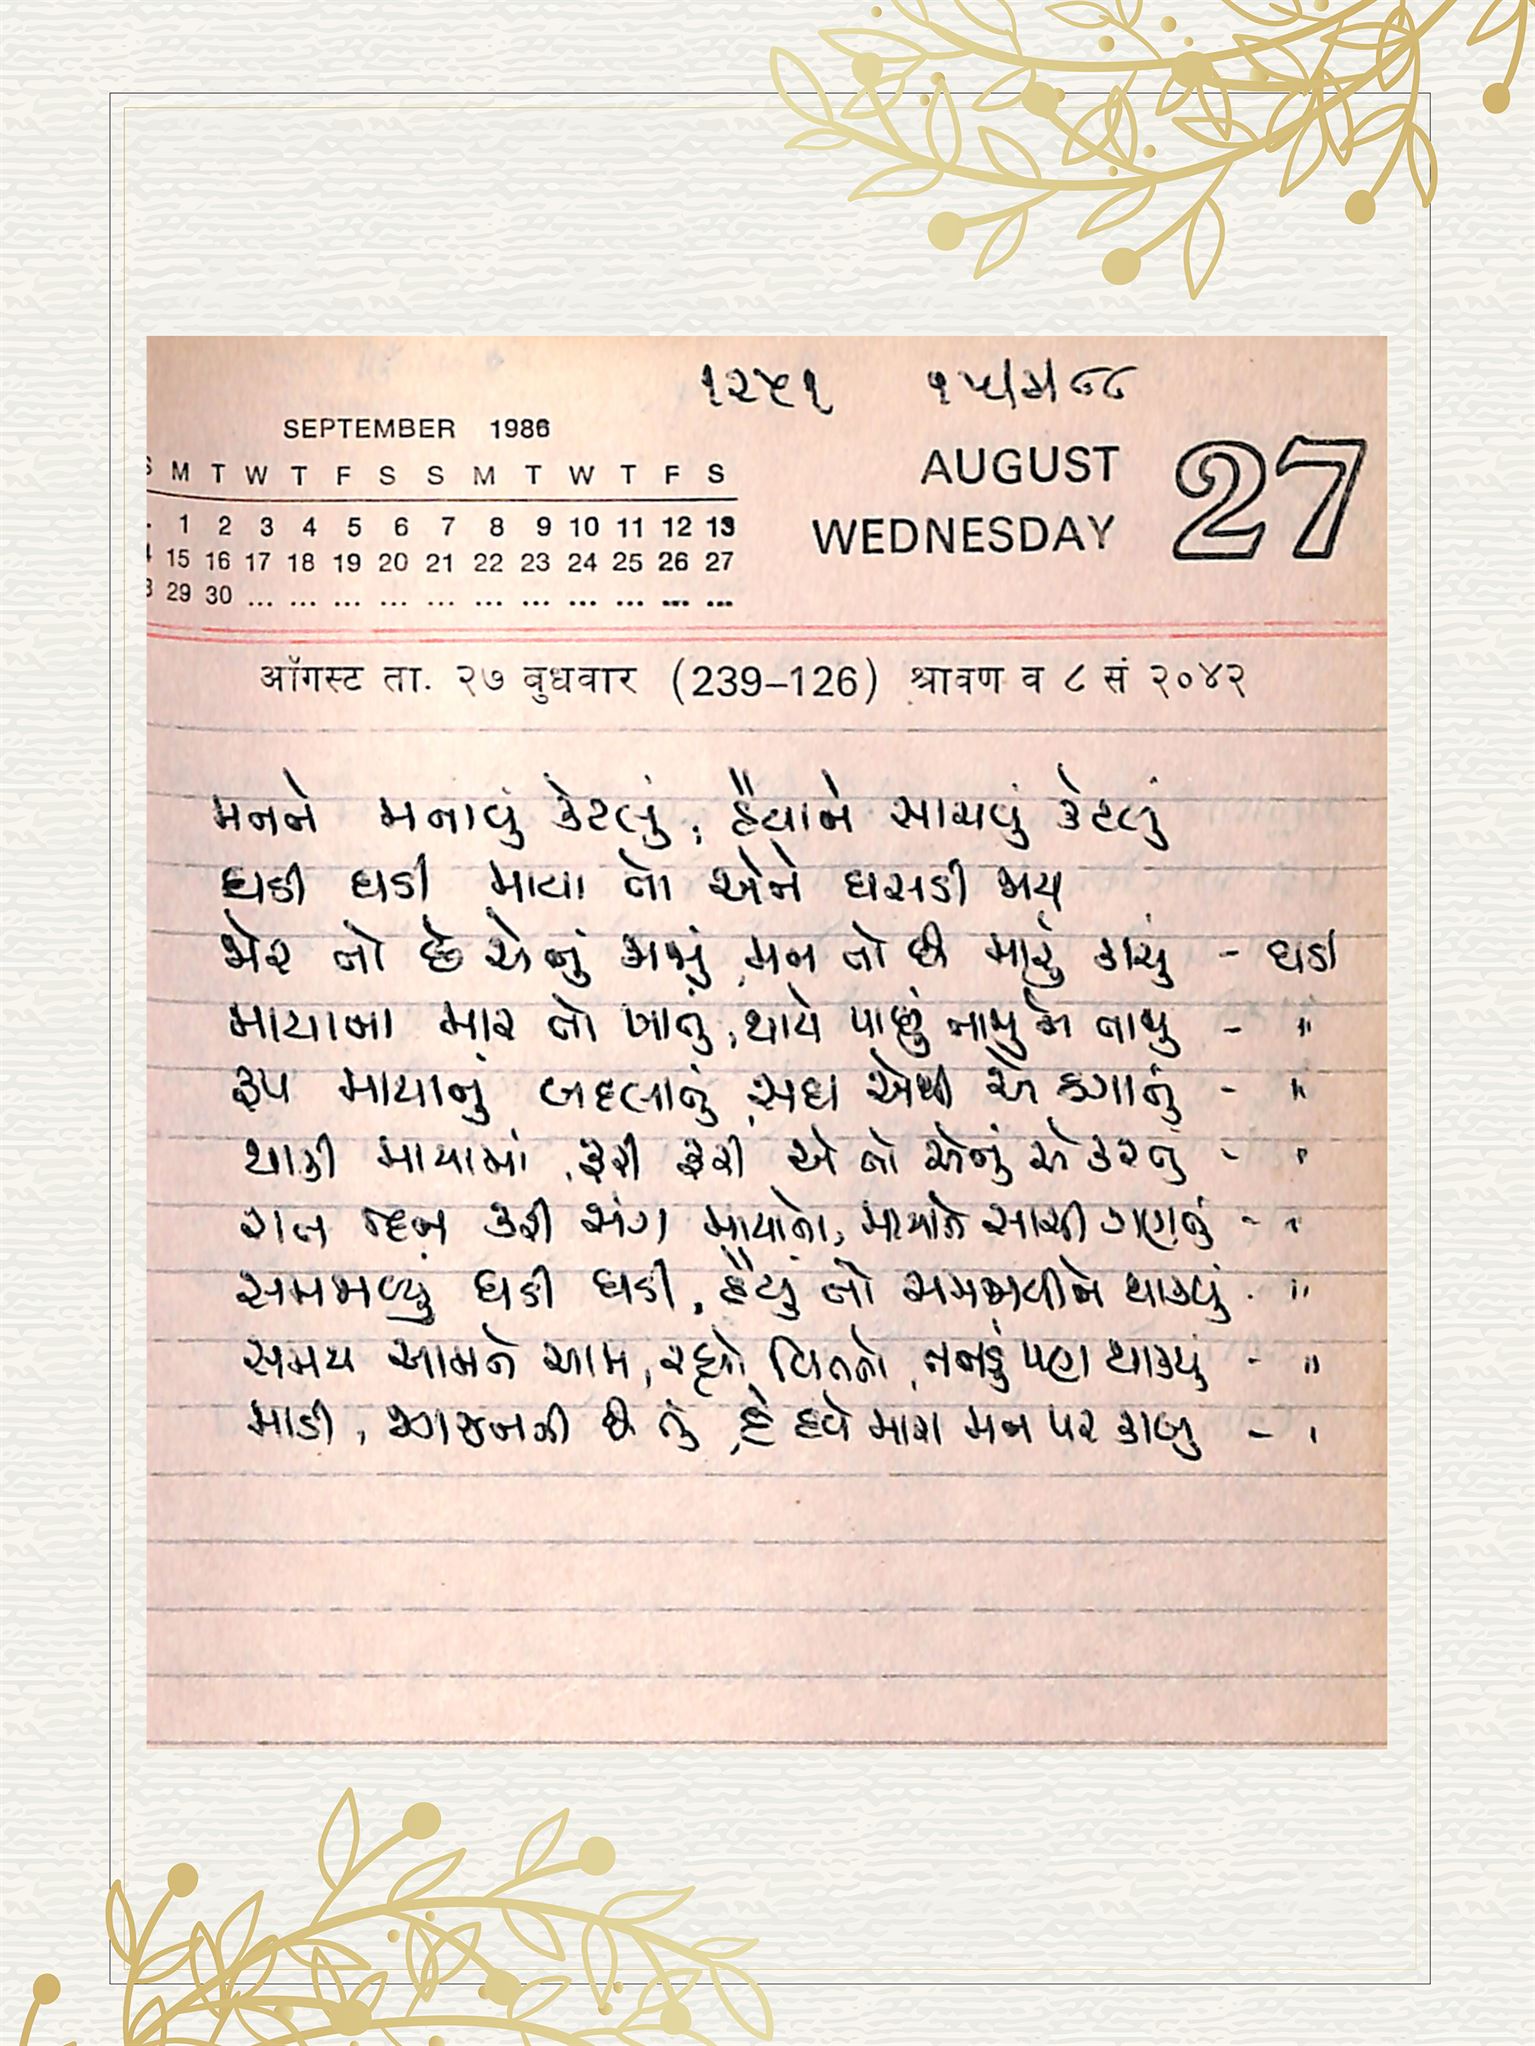 ૧૨૫૧
SEPTEMBER 1986
S M T W T F S S M T W T F S
1 2 3 4 5 6 7 8 9 10 11 12 13
15 16 17 18 19 20 21 22 23 24 25 26 27
29 30 ... ... ... ... ... ... ... ... ... ... ...
AUGUST
WEDNESDAY
27
ऑगस्ट ता. २७ बुधवार (239–126) श्रावण व ८ सं २०४२
મનને મનાવું કેટલું, હૈયાને સાચવું કેટલું
ઘડી ઘડી માયા તો એને ઘસડી જાય
જોર તો છે એનું મન તો છે મારું કાચું - ઘડી
માયાના માર તો ખાતું, થાયે પાછું - "
રૂપ માયાનું બદલાતું, સદા એથી એ - "
થાકી માયામાં, ફરી ફરી એ તો એનું એ કરતું - "
રાત દિન કરી સંગ માયાનો, માયાને સાચી ગણતું - "
સમજાવ્યું ઘડી ઘડી, હૈયું તો સમજાવીને થાક્યું - "
સમય આમને આમ, રહ્યો વિતતો, તનડું પણ થાક્યું - "
માડી, છે તું, દે હવે મારા મન પર કાબુ - "